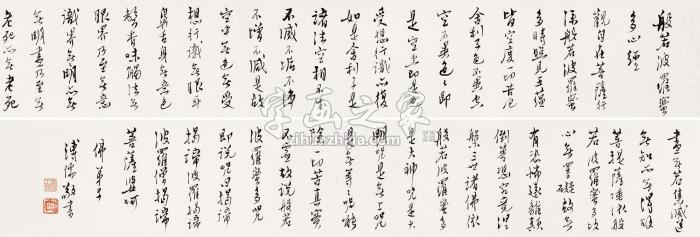 般若波羅蜜
多心經
觀自在菩薩行
深般若波羅蜜
多時照見五蘊
皆空度一切苦厄
舍利子色不異空
空不異色色即
是空空即是色
受想行識亦復
如是舍利子是
諸法空相不生
不滅不垢不淨
不增不減是故
空中無色無受
想行識無眼耳
鼻舌身意無色
聲香味觸法無
眼界乃至無意
識界無明亦無
無明盡乃至無
老死亦無老死
盡無苦集滅道
無知亦無得故
菩提薩埵依般
若波羅蜜多故
心無罣礙故無
有恐怖遠離顛
倒夢想究竟涅
槃三世諸佛依
般若波羅蜜多
是大神咒是大
明咒是無上咒
是無等等咒能
除一切苦真實
不虛故說般若
波羅蜜多咒
即說咒曰揭諦
揭諦波羅揭諦
波羅僧揭諦
菩提薩婆訶
佛弟子
溥儒敬書
字画之家
zihuazhijia.com